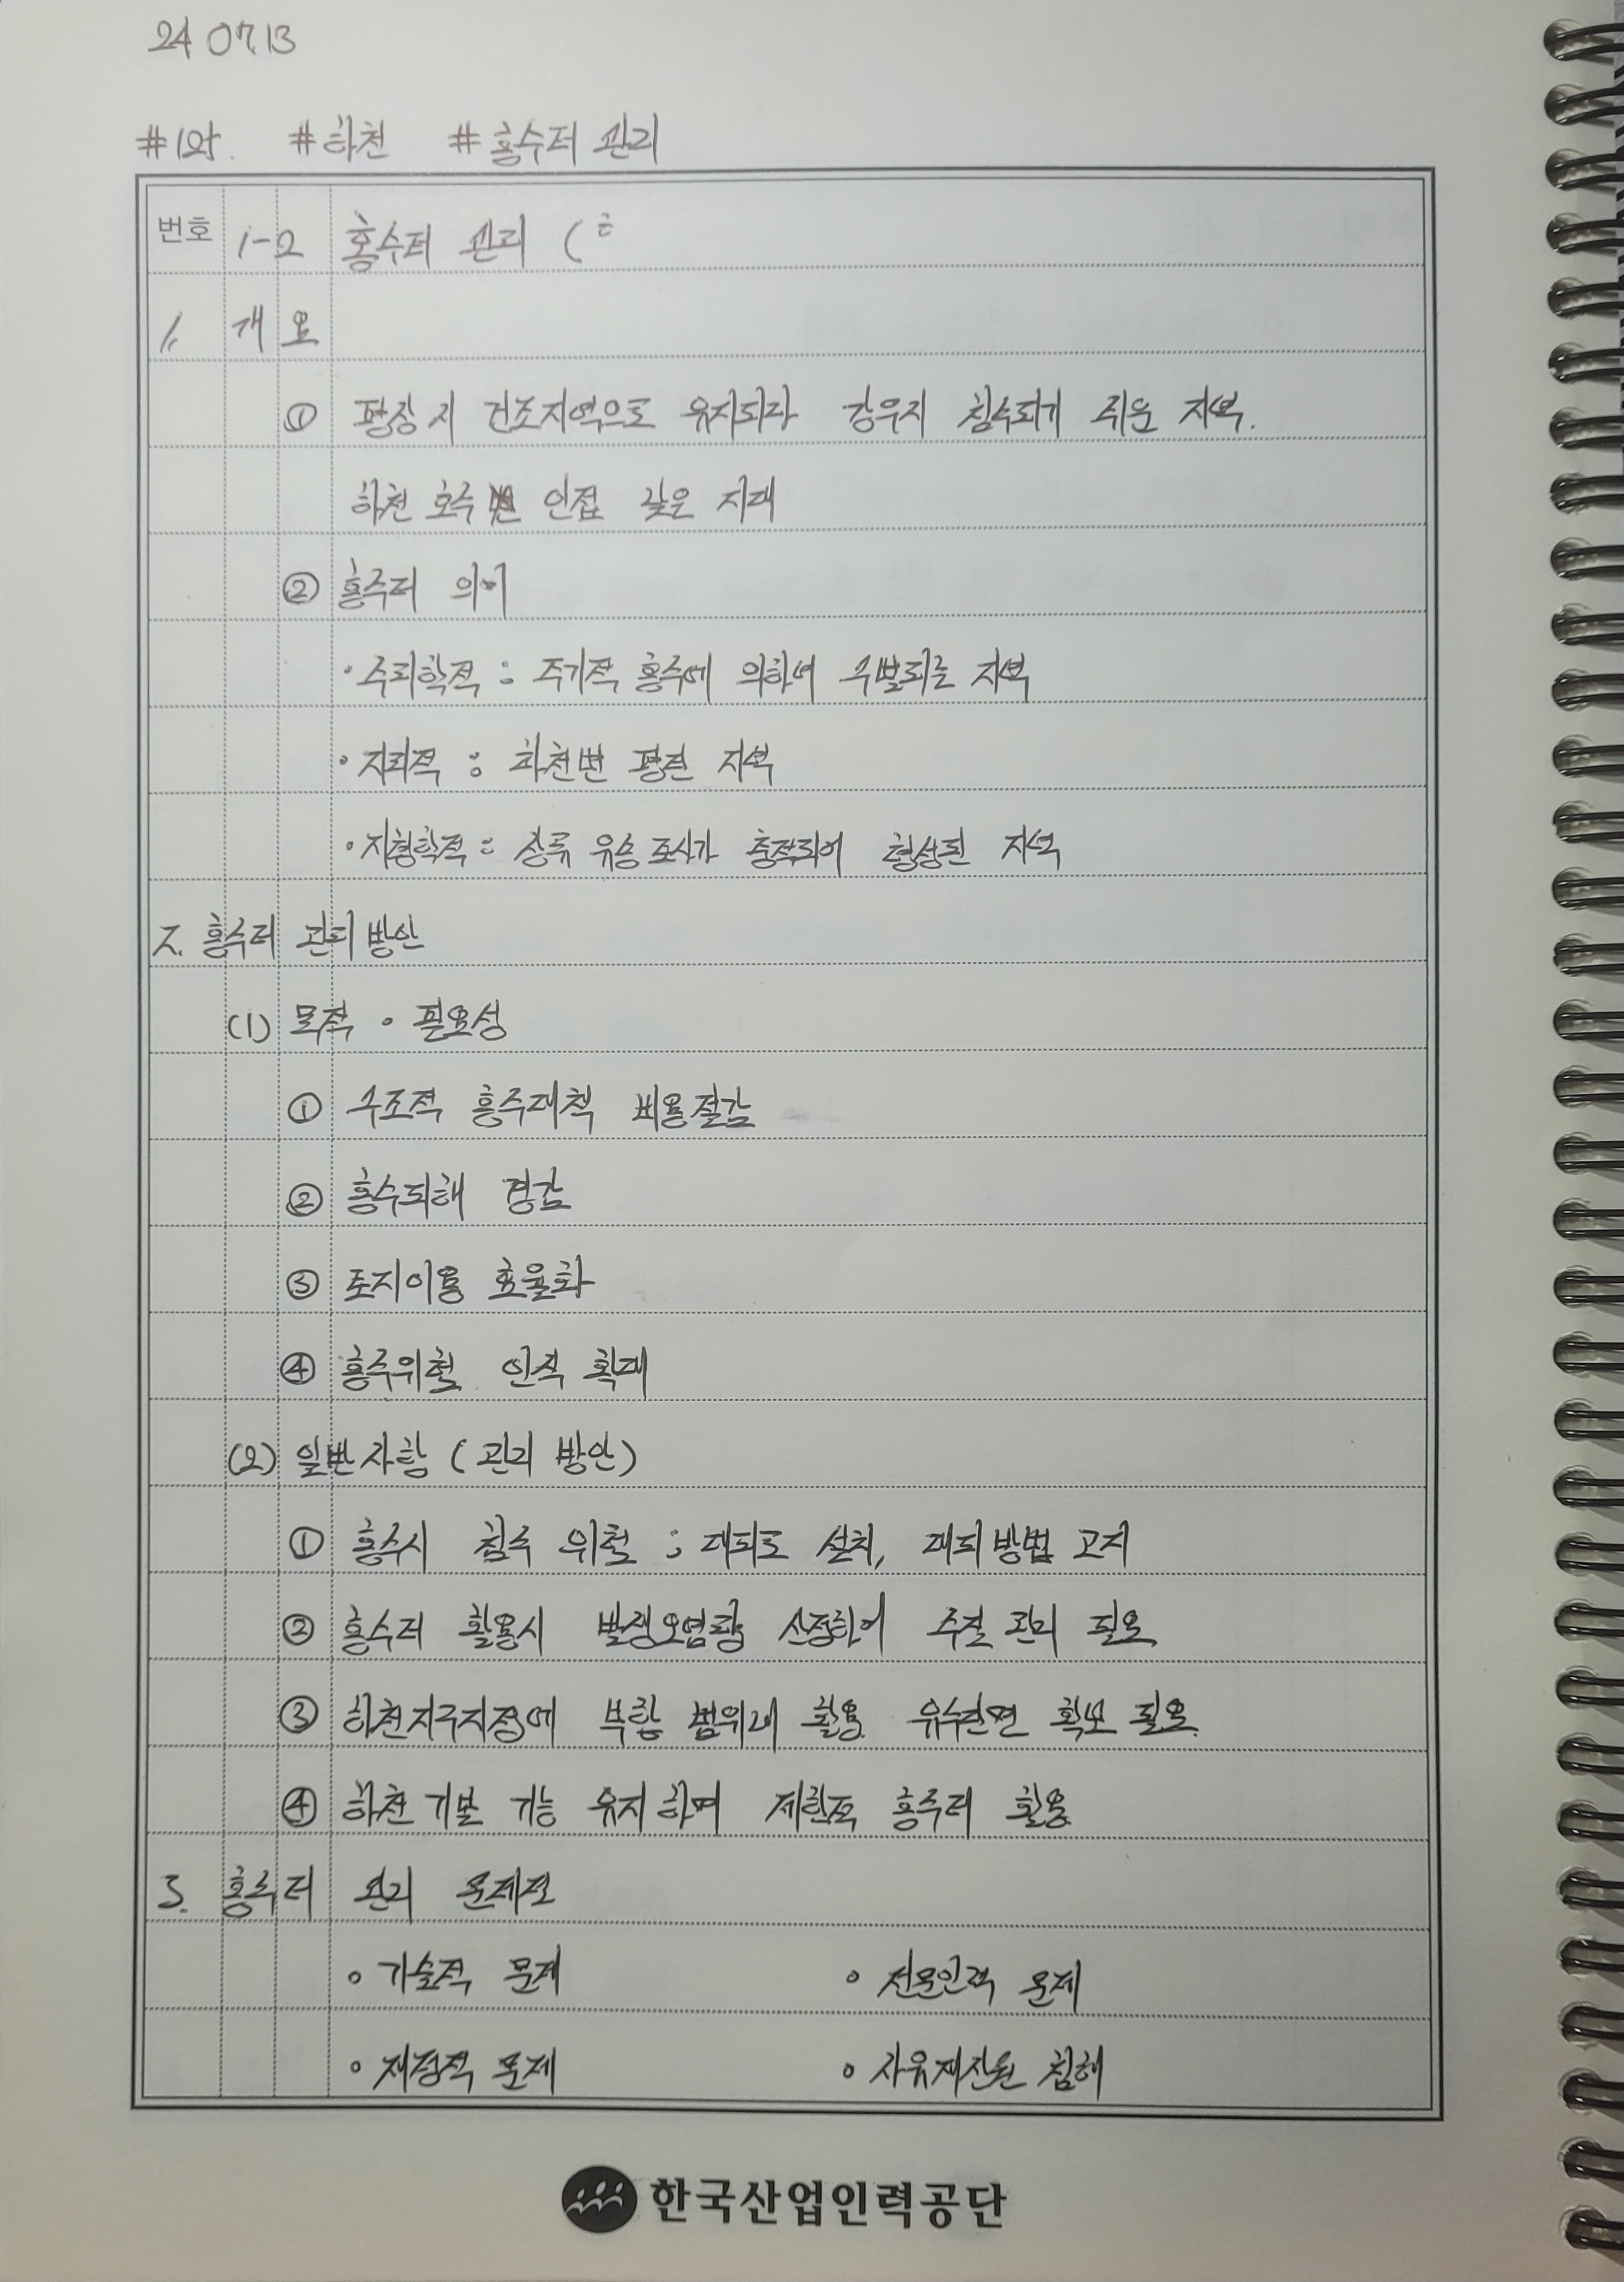 24 07.13
#1와. #하천 #홍수터 관리
번호 1-2 홍수터 관리 (
1. 개요
① 평장시 건조지역으로 유지되다 강우시 침수되기 쉬운 지역.
하천 호수변 인접 낮은 지대
② 홍수터 의미
· 수리학적 : 주기적 홍수에 의하여 수몰되는 지역
· 지리적 : 하천변 평탄 지역
· 지형학적 : 상류 유송토사가 충적되어 형성된 지역
2. 홍수터 관리방안
(1) 목적 · 필요성
① 구조적 홍수대책 비용절감
② 홍수피해 경감
③ 토지이용 효율화
④ 홍수위험 인식 확대
(2) 일반사항 (관리 방안)
① 홍수시 침수 위험 ; 대피로 설치, 대피방법 고지
② 홍수터 활용시 발생오염량 산정하여 수질 관리 필요
③ 하천지구지정에 부합 범위내 활용 유수단면 확보 필요.
④ 하천 기본 기능 유지하며 제한적 홍수터 활용
3. 홍수터 관리 문제점
∘ 기술적 문제 ∘ 전문인력 문제
∘ 재정적 문제 ∘ 사유재산권 침해
한국산업인력공단